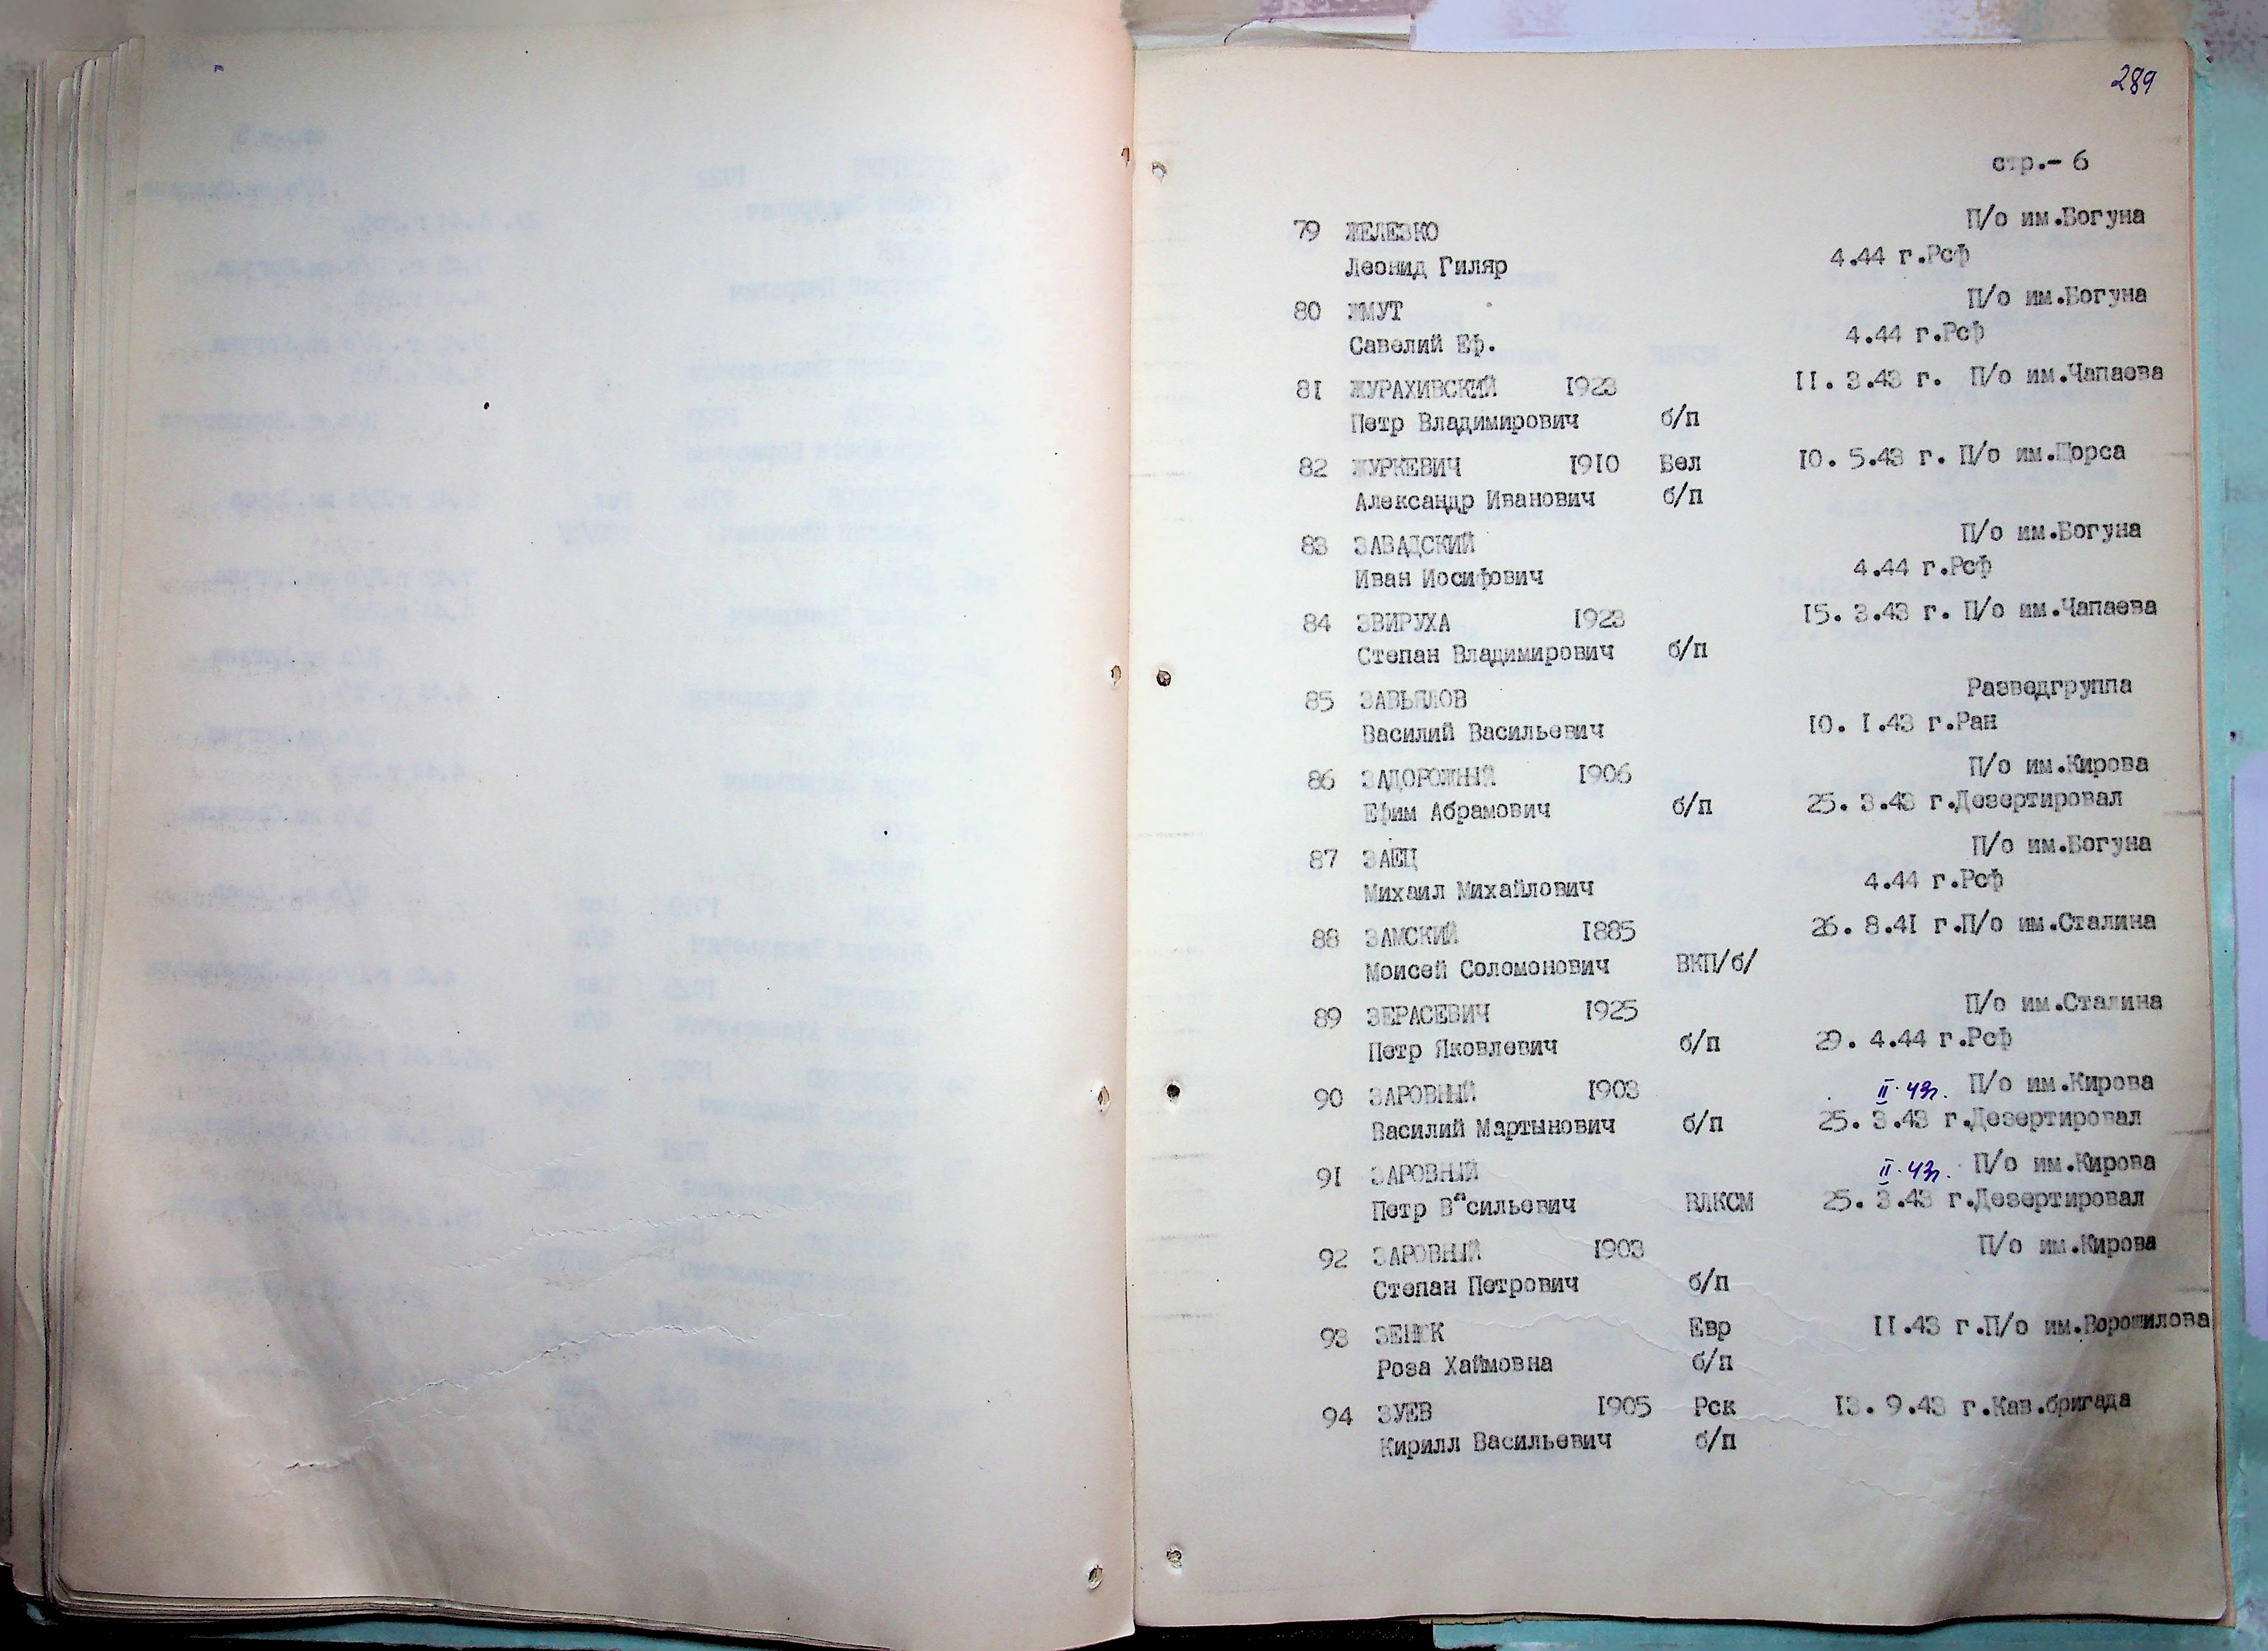 289
стр.- 6
79 ЖЕЛЕЗКО П/о им.Богуна
Леонид Гиляр 4.44 г.Рсф
80 ЖМУТ П/о им.Богуна
Савелий Еф. 4.44 г.Рсф
81 ЖУРАХИВСКИЙ 1923 11. 3.43 г. П/о им.Чапаева
Петр Владимирович б/п
82 ЖУРКЕВИЧ 1910 Бел 10. 5.43 г. П/о им.Щорса
Александр Иванович б/п
83 ЗАВАДСКИЙ П/о им.Богуна
Иван Иосифович 4.44 г.Рсф
84 ЗВИРУХА 1923 15. 3.43 г. П/о им.Чапаева
Степан Владимирович б/п
85 ЗАВЬЯЛОВ Разведгруппа
Василий Васильевич 10. 1.43 г.Ран
86 ЗАДОРОЖНЫЙ 1906 П/о им.Кирова
Ефим Абрамович б/п 25. 3.43 г.Дезертировал
87 ЗАЕЦ П/о им.Богуна
Михаил Михайлович 4.44 г.Рсф
88 ЗАМСКИЙ 1885 26. 8.41 г.П/о им.Сталина
Моисей Соломонович ВКП/б/
89 ЗЕРАСЕВИЧ 1925 П/о им.Сталина
Петр Яковлевич б/п 29. 4.44 г.Рсф
90 ЗАРОВНЫЙ 1903 II. 43г. П/о им.Кирова
Василий Мартынович б/п 25. 3.43 г.Дезертировал
91 ЗАРОВНЫЙ II. 43г. П/о им.Кирова
Петр Васильевич ВЛКСМ 25. 3.43 г.Дезертировал
92 ЗАРОВНЫЙ 1903 П/о им.Кирова
Степан Петрович б/п
93 ЗЕНЮК Евр 11.43 г.П/о им.Ворошилова
Роза Хаймовна б/п
94 ЗУЕВ 1905 Рск 13. 9.43 г.Кав.бригада
Кирилл Васильевич б/п